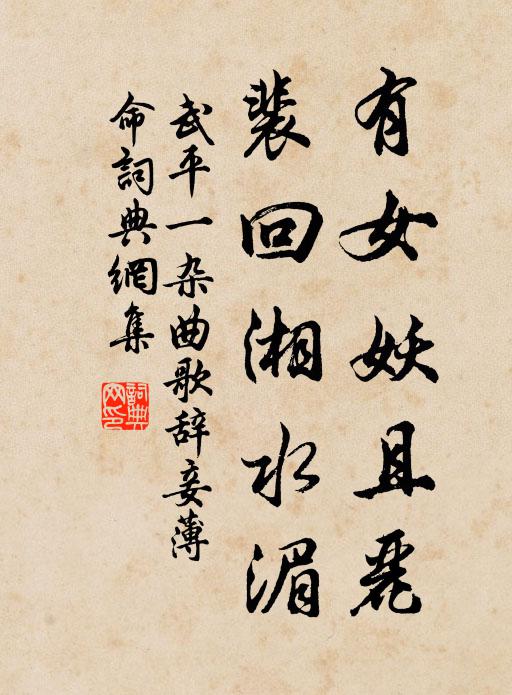 有女妖且麗
裴回湘水湄
武平一杂曲歌辞妾薄
命詞典網集
詞典網印